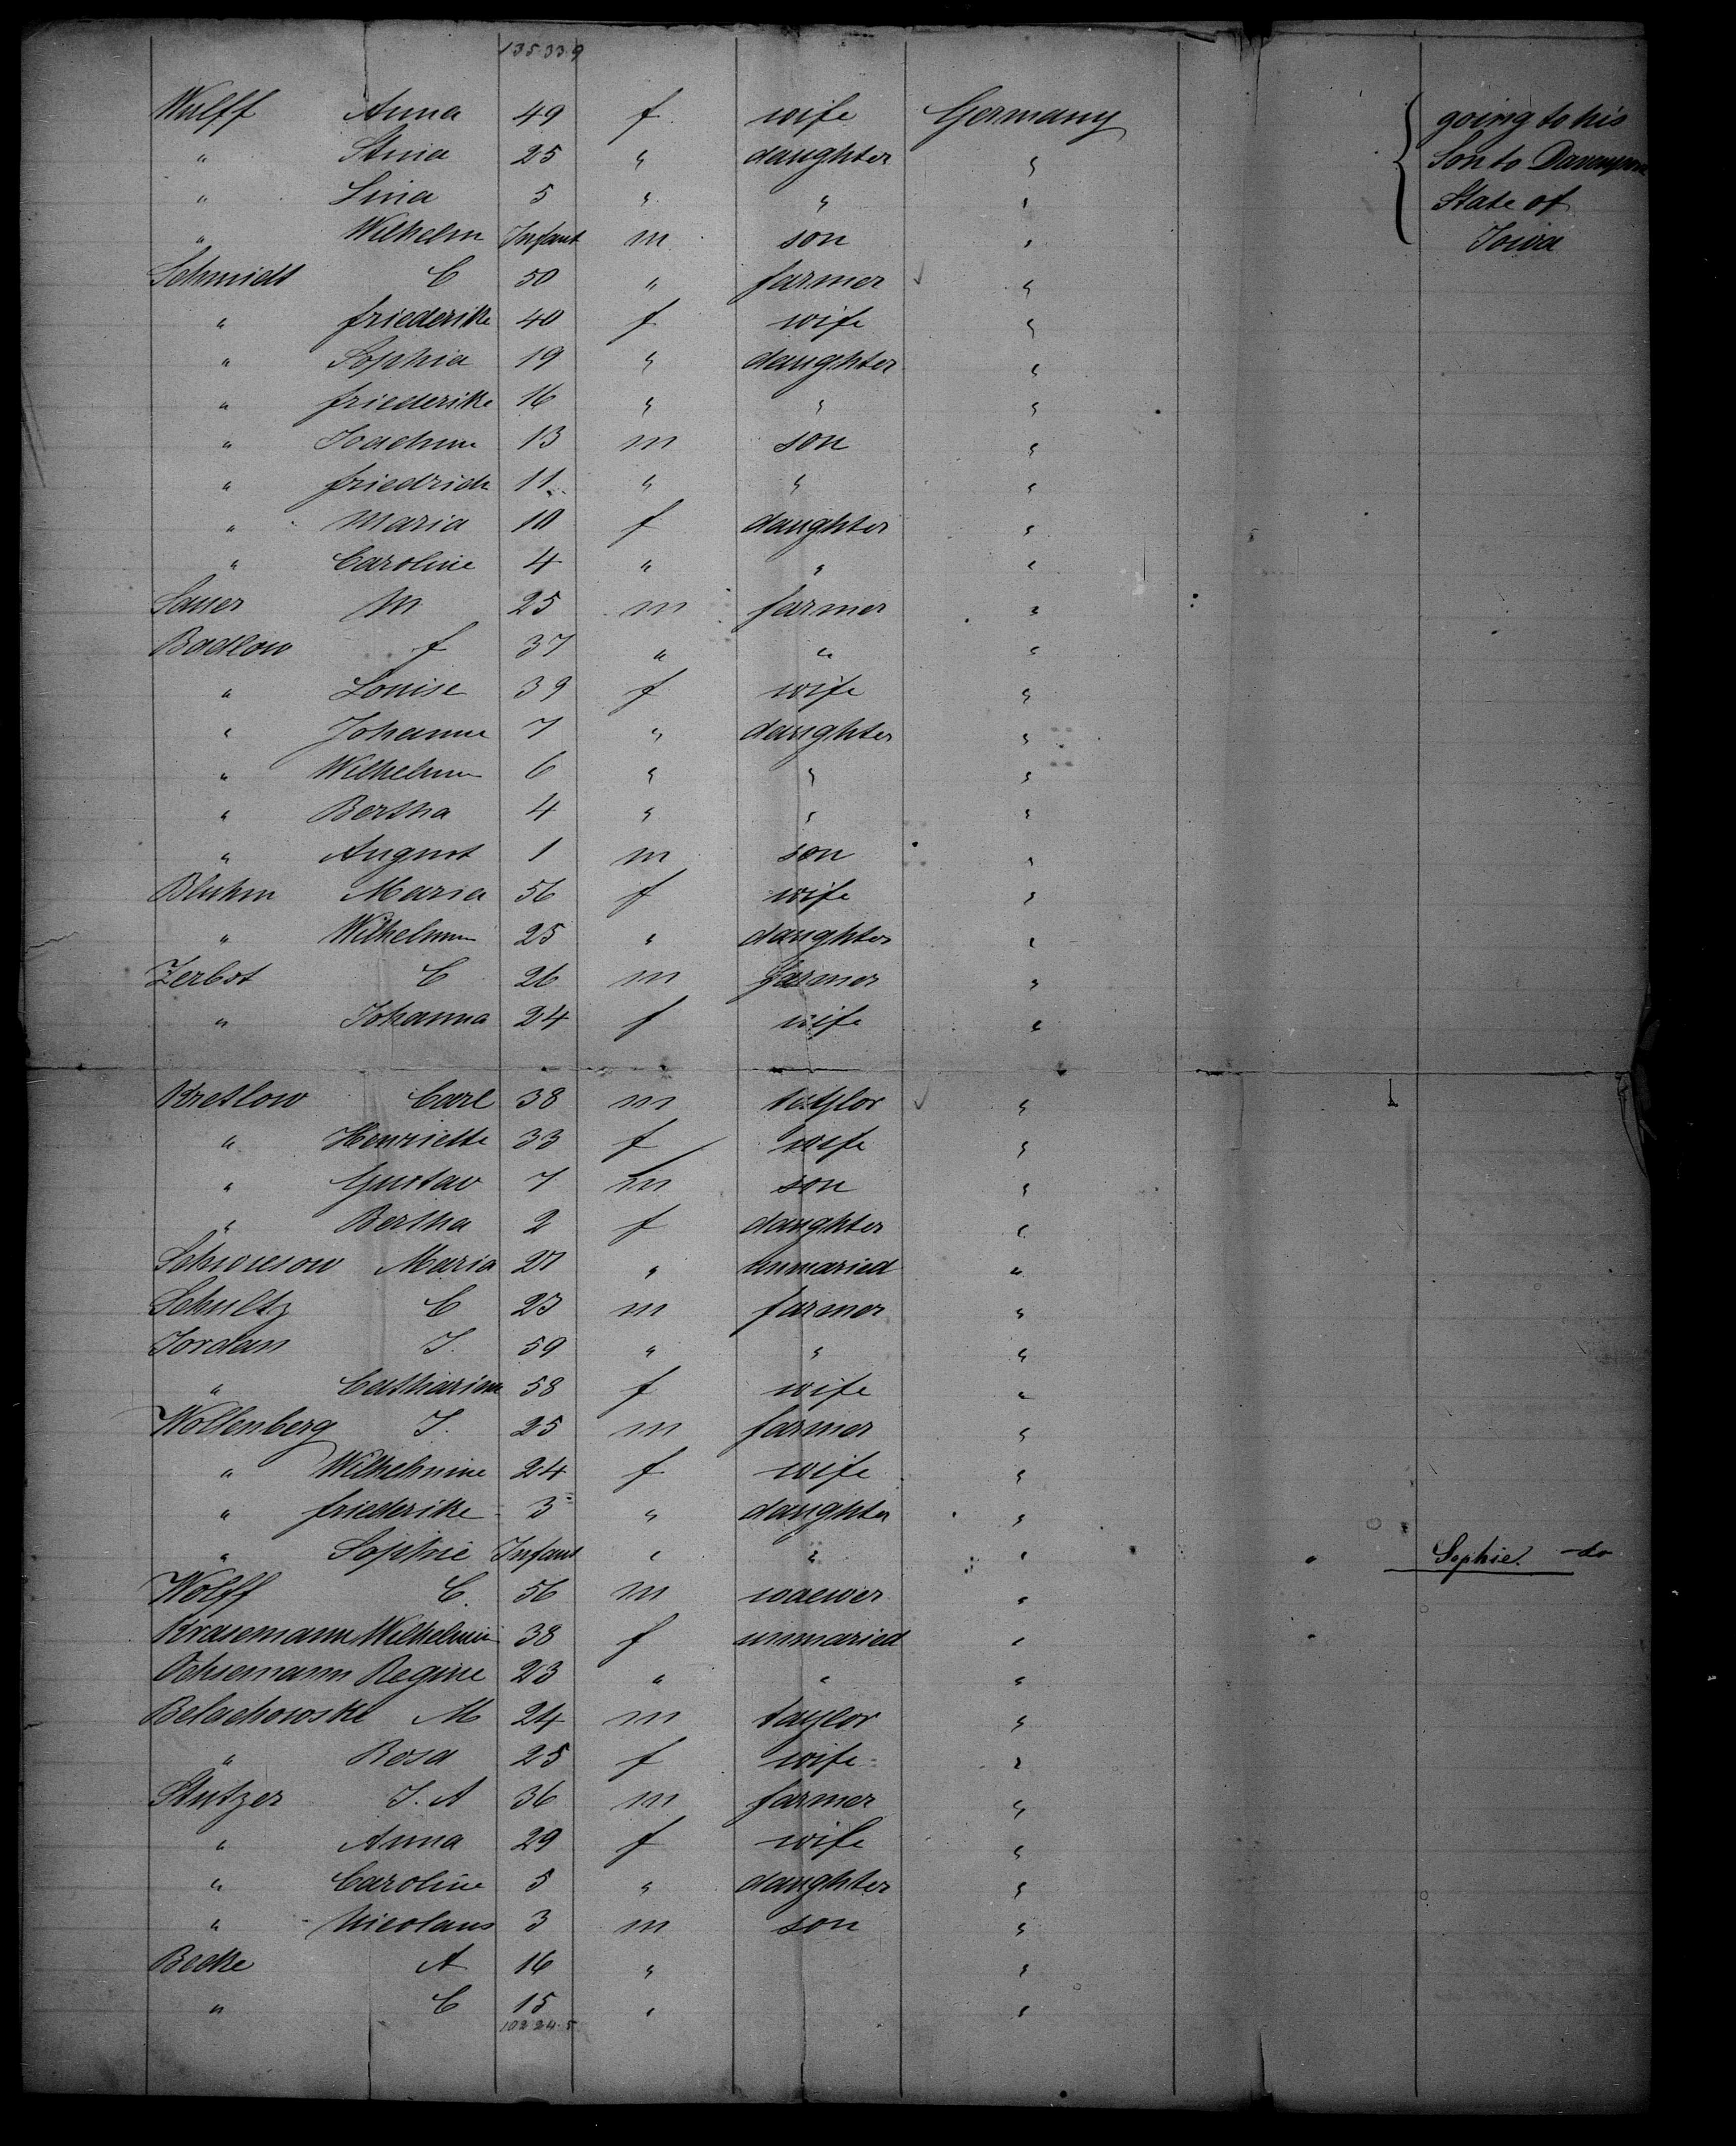 135.33.9
Wulff Anna 49 f wife Germany going to his
" Stina 25 " daughter " Son to
" Lina 5 " " " State of
" Wilhelm Infant m son " Iowa
Schmidt C 50 " farmer "
" friederike 40 f wife "
" Sophia 19 " daughter "
" friederike 16 " " "
" Joachim 13 m son "
" friedrich 11 " " "
" Maria 10 f daughter "
" Caroline 4 " " "
Sauer M 25 m farmer "
Badlow f 37 " " "
" Louise 39 f wife "
" Johanne 7 " daughter "
" Wilhelmin 6 " " "
" Bertha 4 " " "
" August 1 m son "
Bluhm Maria 56 f wife "
" Wilhelmin 25 " daughter "
Zerbst C 26 m farmer "
" Johanna 24 f wife "
Kretlow Carl 38 m taylor "
" Henriette 33 f wife "
" Gustav 7 m son "
" Bertha 2 f daughter "
Maria 27 " unmaried "
Schultz C 23 m farmer "
Jordan J. 59 " " "
" Catharina 58 f wife "
Wollenberg J. 25 m farmer "
" Wilhelmine 24 f wife "
" friederike 3 " daughter "
" Sophie Infant " " " Sophie. - do
Wolff C. 56 m waewer "
Krasemann Wilhelmin 38 f unmaried "
Ochsemann Regine 23 " " "
Belachowske M 24 m taylor "
" Rosa 25 f wife "
Stutzer J. A 36 m farmer "
" Anna 29 f wife "
" Caroline 5 " daughter "
" Nicolaus 3 m son "
Bedke A 16 " "
" C 15 " "
102 24.5